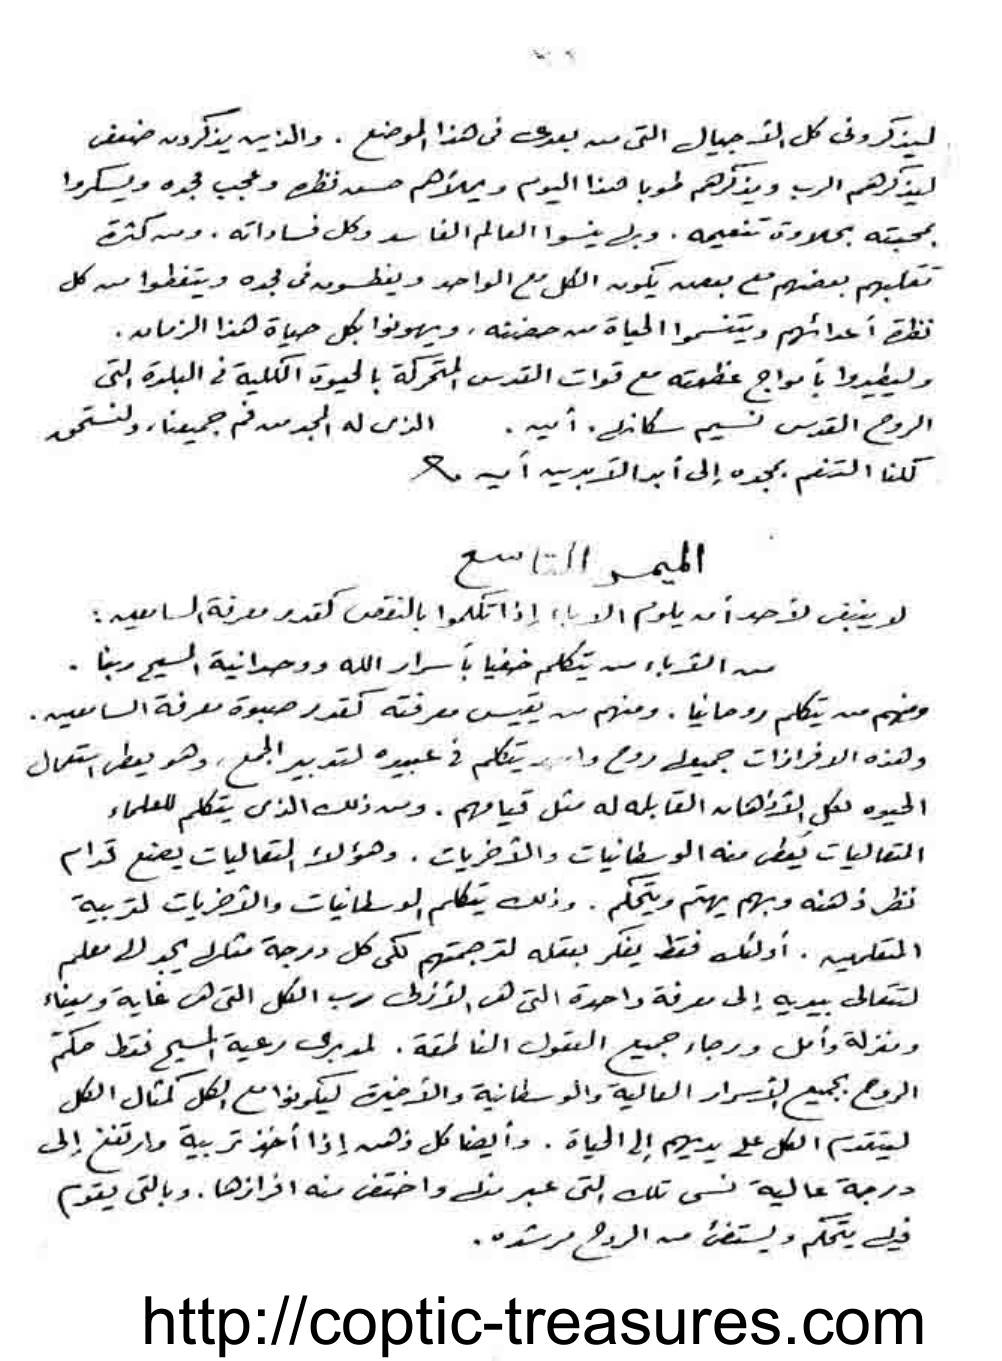 ليذكرونى كل الأجيال التى من بعدى فى هذا الموضع . والذين يذكرون ضعفى
ليذكرهم الرب ويذكرهم طوبا هذا اليوم ويملأهم حسن نظره وعجب مجده ويسكروا
بمحبته بحلاوة تنعيمه . وبه ينسوا العالم الفاسد وكل فساداته . ومن كثرة
تقلبهم بعضهم مع بعض يكون الكل مع الواحد ويغطسون فى مجده ويتغطوا من كل
نظرة أعدائهم ويتنسموا الحياة من حضنته ، ويهونوا بكل حياة هذا الزمان .
وليطيروا بأمواج عظمته مع قوات القدس المتحركة بالحيوة الكلية فى البلدة التى
الروح القدس نسيم سكانها . أمين . الذى له المجد من فم جميعنا ، ولنستحق
كلنا التنعم بمجده إلى أبد الآبدين أمين
الميمر التاسع
لا ينبغى لأحد أن يلوم الاباء إذا تكلموا بالنقص كقدر معرفة السامعين :
من الآباء من يتكلم خفيا بأسرار الله ووحدانية المسيح ربنا .
ومنهم من يتكلم روحانيا . ومنهم من يقيس معرفته كقدر صبوة معرفة السامعين .
وهذه الافرازات جميعها روح واحد يتكلم فى عبيده لتدبير الجمع ، وهو يعطى استعمال
الحيوه لكل الأذهان القابله له مثل قيامهم . ومن ذلك الذى يتكلم للعلماء
المتعاليات يُعطى منه الوسطانيات والأخريات . وهؤلاء المتعاليات يصنع قدام
نظر ذهنه وبهم يهتم ويتحكم . وذلك يتكلم الوسطانيات والأخريات لتربية
المتعلمين . أولئك فقط يفكر بعقله لترجمتهم لكى كل درجة مثلها يجد له معلم
لتتعالى بيديه إلى معرفة واحدة التى هى الأزلى رب الكل التى هى غاية وميناء
ومنزلة وأمل ورجاء جميع العقول الناطقة . لمدبرى رعية المسيح فقط حكمة
الروح بجميع الأسرار العالية والوسطانية والأخيرة ليكونوا مع الكل كمثال الكل
ليتقدم الكل على يديهم إلى الحياة . وأيضا كل ذهن إذا أخذ تربية وارتفع إلى
درجة عالية نسى تلك التى عبر منها واختفى منه افرازها . وبالتى يقوم
فيها يتحكم ويستضئ من الروح مرشده .
http://coptic-treasures.com